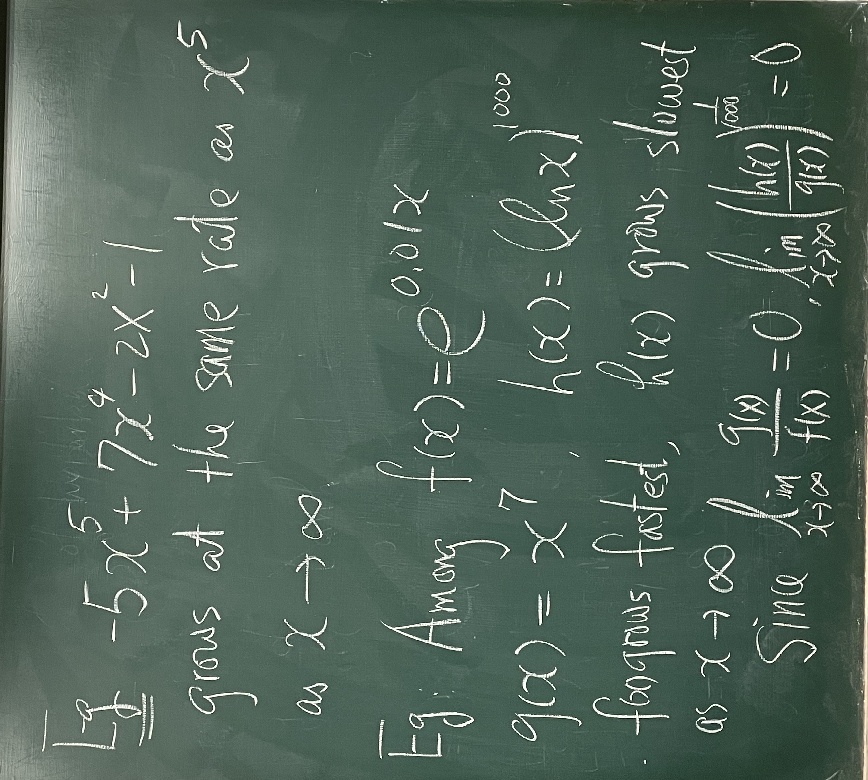 Eg -5x⁵ + 7x⁴ - 2x² - 1
grows at the same rate as x⁵
as x → ∞
Eg: Among f(x) = e^{0.01x}
g(x) = x⁷, h(x) = (ln x)^{1000}
f(x) grows fastest, h(x) grows slowest
as x → ∞
Since lim_{x→∞} g(x)/f(x) = 0, lim_{x→∞} (h(x)/g(x))^{1/1000} = 0